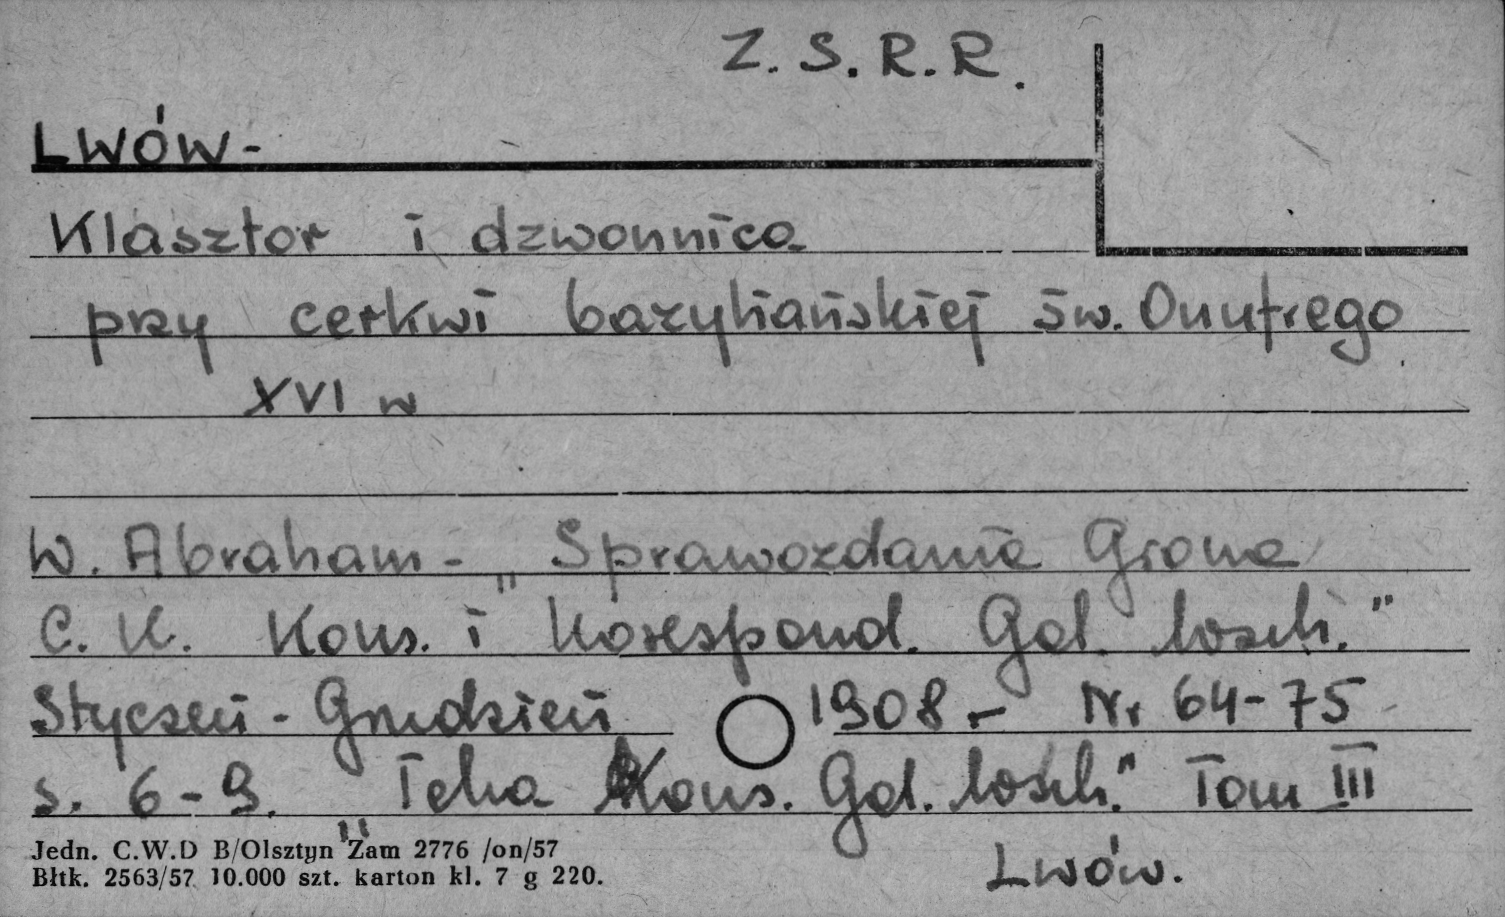 Z. S. R. R.
LWÓW-
Klasztor i dzwonnica
przy cerkwi bazyliańskiej św. Onufrego
XVI w
W. Abraham - „Sprawozdania Grona
C. K. Kons. i Korespond. Gal. wsch."
Styczeń - Grudzień 1908 - Nr 64-75
s. 6-9. „Teka Kons. Gal. wsch." Tom III
Lwów.
Jedn. C.W.D B/Olsztyn Zam 2776 /on/57
Błtk. 2563/57 10.000 szt. karton kl. 7 g 220.